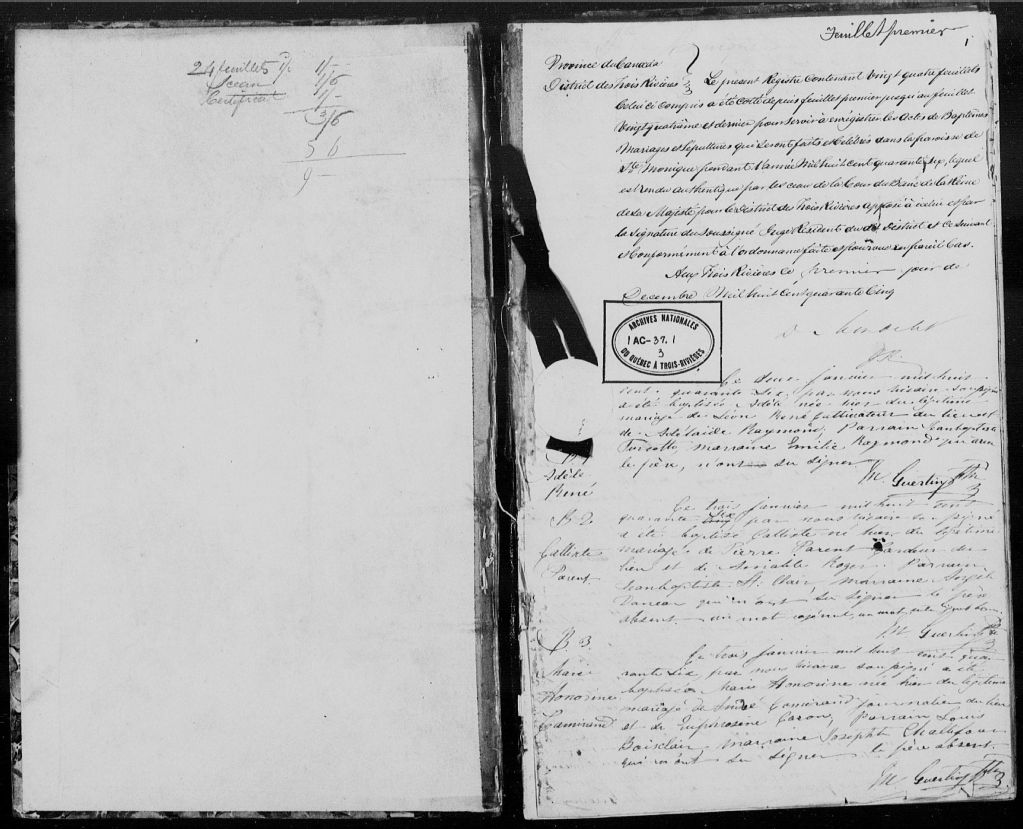 24 feuillets 1/-
Sceau 1/6
Certificat 1/-
3/6
5 6
9 -
Feuillet premier
1
Province du Canada
District des Trois Rivières
Le présent Registre Contenant Vingt quatre feuillets
Celui ci compris a été Cotté depuis feuillet premier jusqu'au feuillet
Vingt quatrième et dernier pour Servir à enrégistrer les Actes de Baptêmes
Mariages et Sépultures qui Seront faits et célébrés dans la paroisse de
Ste Monique pendant l'année Mil huit cent quarante Six, lequel
est rendu authentique par le Sceau de la Cour du Banc de la Reine
de Sa Majesté pour le District des Trois Rivières apposé à icelui et par
la Signature du Soussigné Juge Résident du dit District et ce Suivant
et Conformément à l'ordonnance faite et pourvue en pareil Cas.
Aux Trois Rivières ce premier jour de
Decembre Mil huit Cent quarante Cinq
ARCHIVES NATIONALES
AC-37.1
3
DU QUÉBEC À TROIS-RIVIÈRES
Le deux Janvier mil huit
cent quarante Six par nous vicaire soussigné
a été baptisée Adèle née hier du légitime
mariage de Léon René Cultivateur du lieu et
de Adelaïde Raymond, Parrain Jean baptiste
marraine Emilie Raymond qui avec
le père, n'ont su signer
M. Guertin Ptre
B. 1
Adèle
René
Le trois Janvier mil huit cent
quarante Six par nous vicaire soussigné
a été baptisé Calliste né hier du légitime
mariage de Pierre Parent du
lieu et de Amable Roger. Parrain
Jeanbaptiste St. Clair Marraine
qui n'ont su signer le père
absent. un mot
M. Guertin Ptre
B. 2
Calliste
Parent
B. 3
Marie
Honorine
Lamirand
Le trois Janvier mil huit cent qua
rante Six par nous vicaire soussigné a été
baptisée Marie Honorine née hier du légitime
mariage de André Lamirand journalier du lieu
et de Euphrosine Caron, Parrain Louis
Boisclair marraine Josephte
qui n'ont su signer le père absent.
M. Guertin Ptre